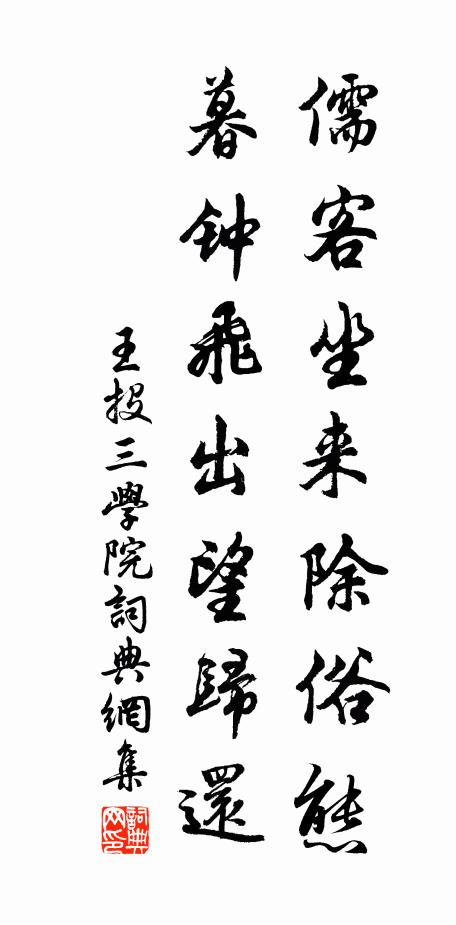 儒客坐来除俗態
暮钟飛出望歸還
王投三學院詞典網集
詞典网印